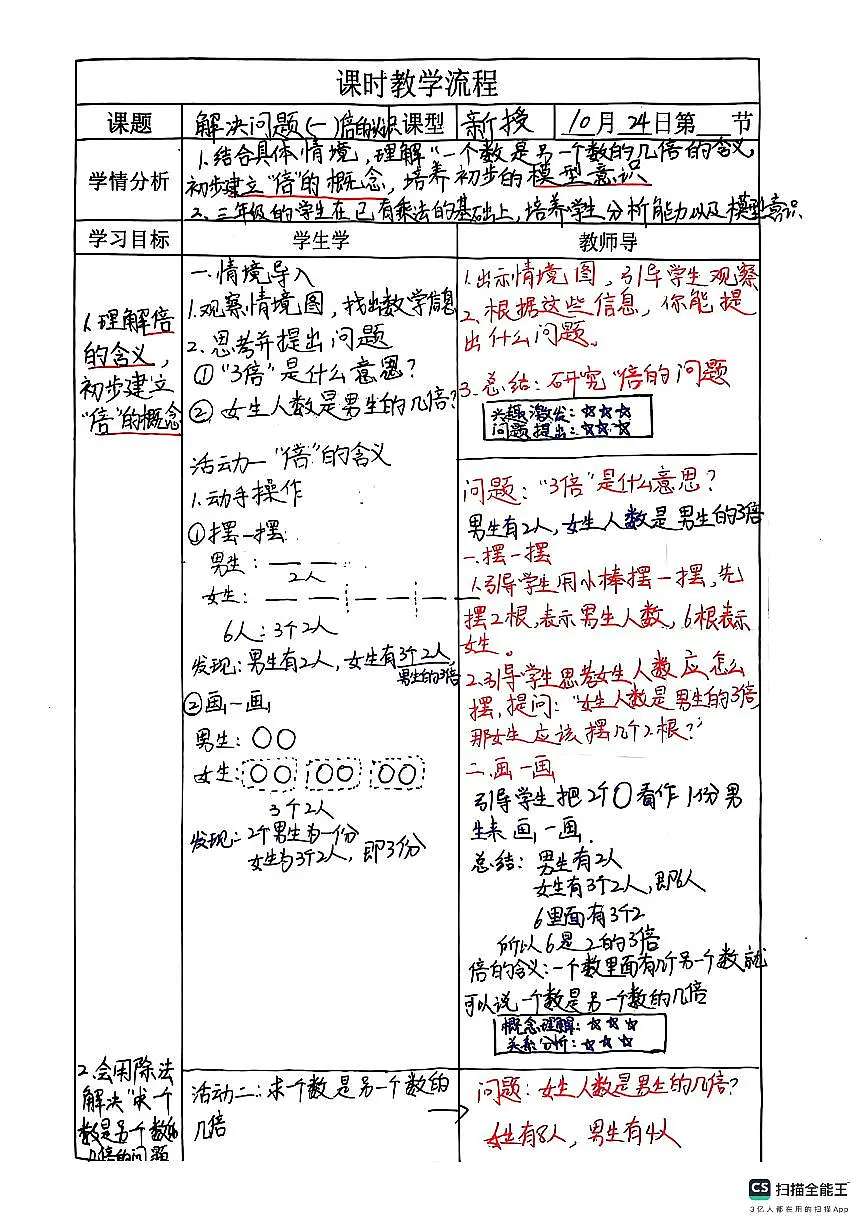 课时教学流程
课题 解决问题(一)倍的认识 课型 新授 10月24日第 节
学情分析
1.结合具体情境,理解“一个数是另一个数的几倍的含义,
初步建立“倍”的概念,培养初步的模型意识
2.三年级的学生在已有乘法的基础上,培养学生分析能力以及模型意识
学习目标 学生学 教师导
1.理解倍
的含义,
初步建立
“倍”的概念
一.情境导入
1.观察情境图,找出数学信息
2.思考并提出问题
①“3倍”是什么意思?
②女生人数是男生的几倍?
1.出示情境图,引导学生观察
2.根据这些信息,你能提
出什么问题。
3.总结:研究“倍的问题
兴趣激发:☆☆☆
问题提出:☆☆☆
活动一 “倍”的含义
1.动手操作
①摆一摆
男生:
2人
女生:
6人:3个2人
发现:男生有2人,女生有3个2人,
男生的3倍
②画一画
男生:○○
女生:○○ ○○ ○○
3个2人
发现:2个男生为一份
女生为3个2人,即3份
问题:“3倍”是什么意思?
男生有2人,女生人数是男生的3倍
一.摆一摆
1.引导学生用小棒摆一摆,先
摆2根,表示男生人数,6根表示
女生。
2.引导学生思考女生人数应怎么
摆,提问:“女生人数是男生的3倍
那女生应该摆几个2根?”
二.画一画
引导学生把2个○看作1份男
生来画一画.
总结:男生有2人
女生有3个2人,即6人
6里面有3个2
所以6是2的3倍
倍的含义:一个数里面有几个另一个数就
可以说一个数是另一个数的几倍
概念理解:☆☆☆
关系分析:☆☆☆
2.会用除法
解决“求一个
数是另一个数的
几倍的问题
活动二:求一个数是另一个数的
几倍
→
问题:女生人数是男生的几倍?
女生有8人,男生有4人
CS 扫描全能王
3亿人都在用的扫描App